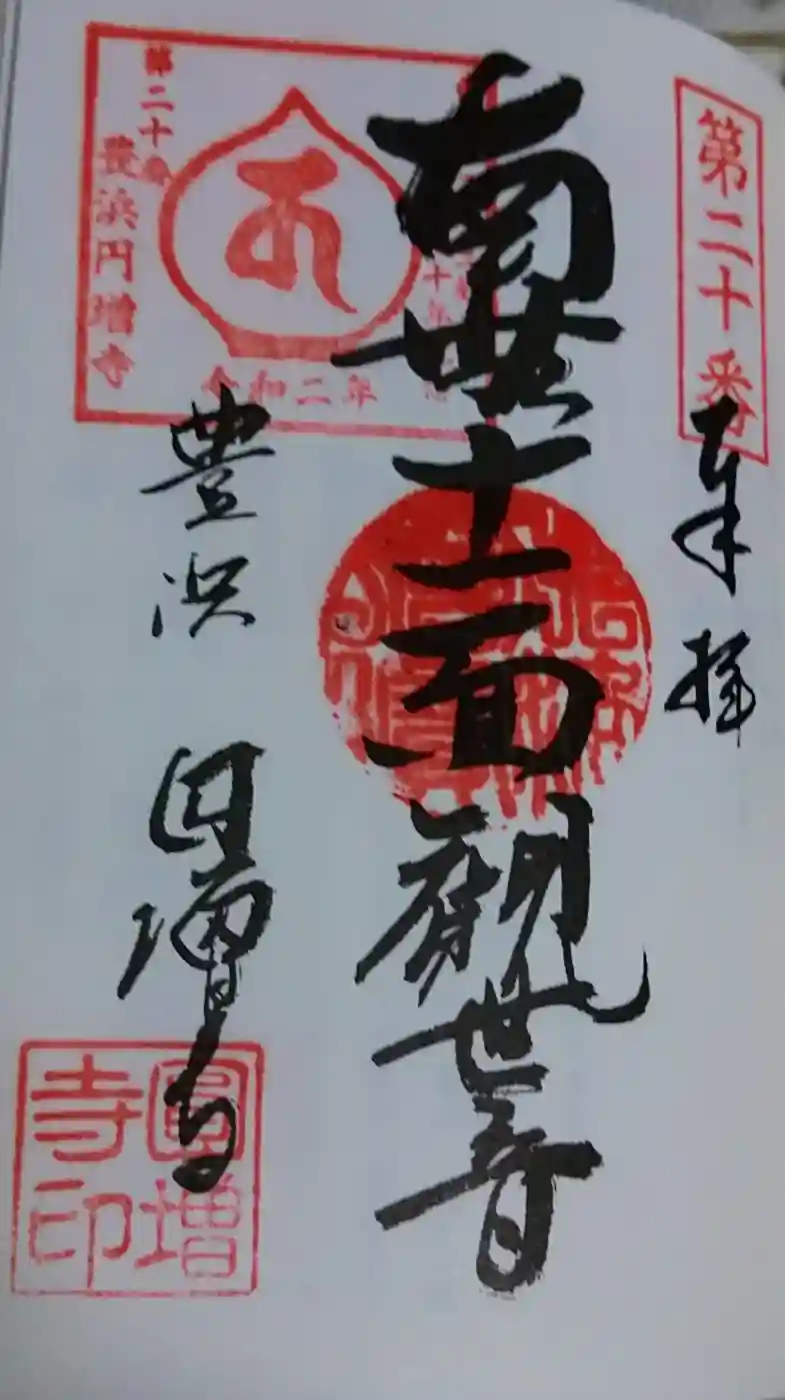 第二十番
奉拝
南無十一面観世音
第二十番
豊浜円増寺
令和二年
豊浜 円増寺
圓増寺印